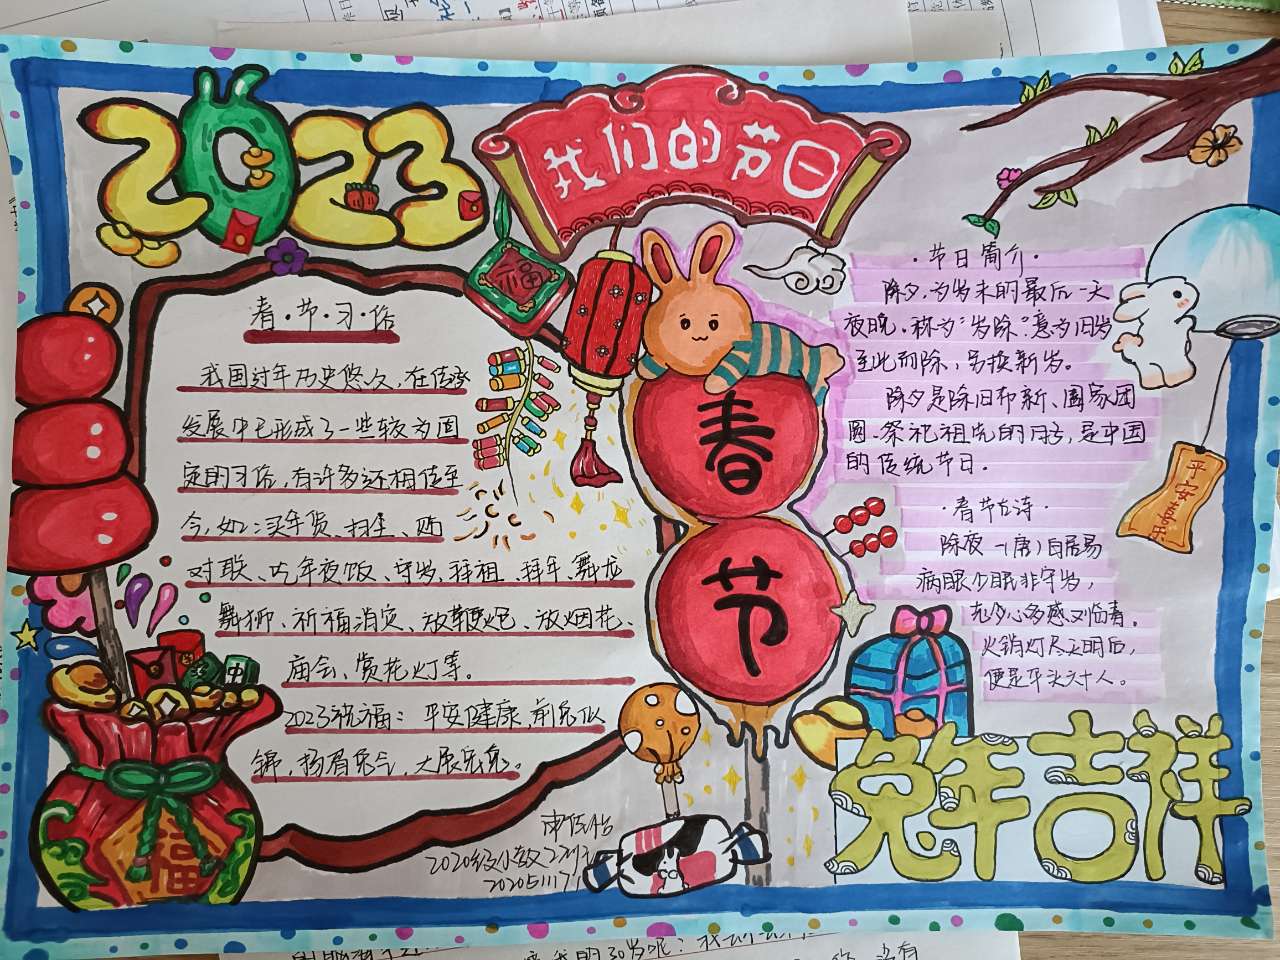 2023
我们的节日
福
春·节·习·俗
我国过年历史悠久，在传承
发展中已形成了一些较为固
定的习俗，有许多还相传至
今，如：买年货、扫尘、贴
对联、吃年夜饭、守岁、拜祖、拜年、舞龙
舞狮、祈福消灾、放鞭炮、放烟花、
庙会、赏花灯等。
2023祝福：平安健康，前兔似
锦，扬眉兔气，大展宏兔。
春
节
·节日简介·
除夕，为岁末的最后一天
夜晚，称为“岁除”意为旧岁
至此而除，另换新岁。
除夕是除旧布新、阖家团
圆、祭祀祖先的日子，是中国
的传统节日。
·春节古诗·
除夜-(唐)白居易
病眼少眠非守岁，
老多心多感又临春。
火销灯尽天明后，
便是平头六十人。
平安喜乐
中
福
兔年吉祥
2020级小教